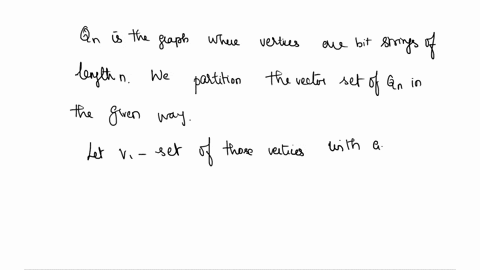 Qn is the graph whose vertices are bit strings of
length n. We partition the vector set of Qn in
the given way.
Let V1 - set of those vertices with a